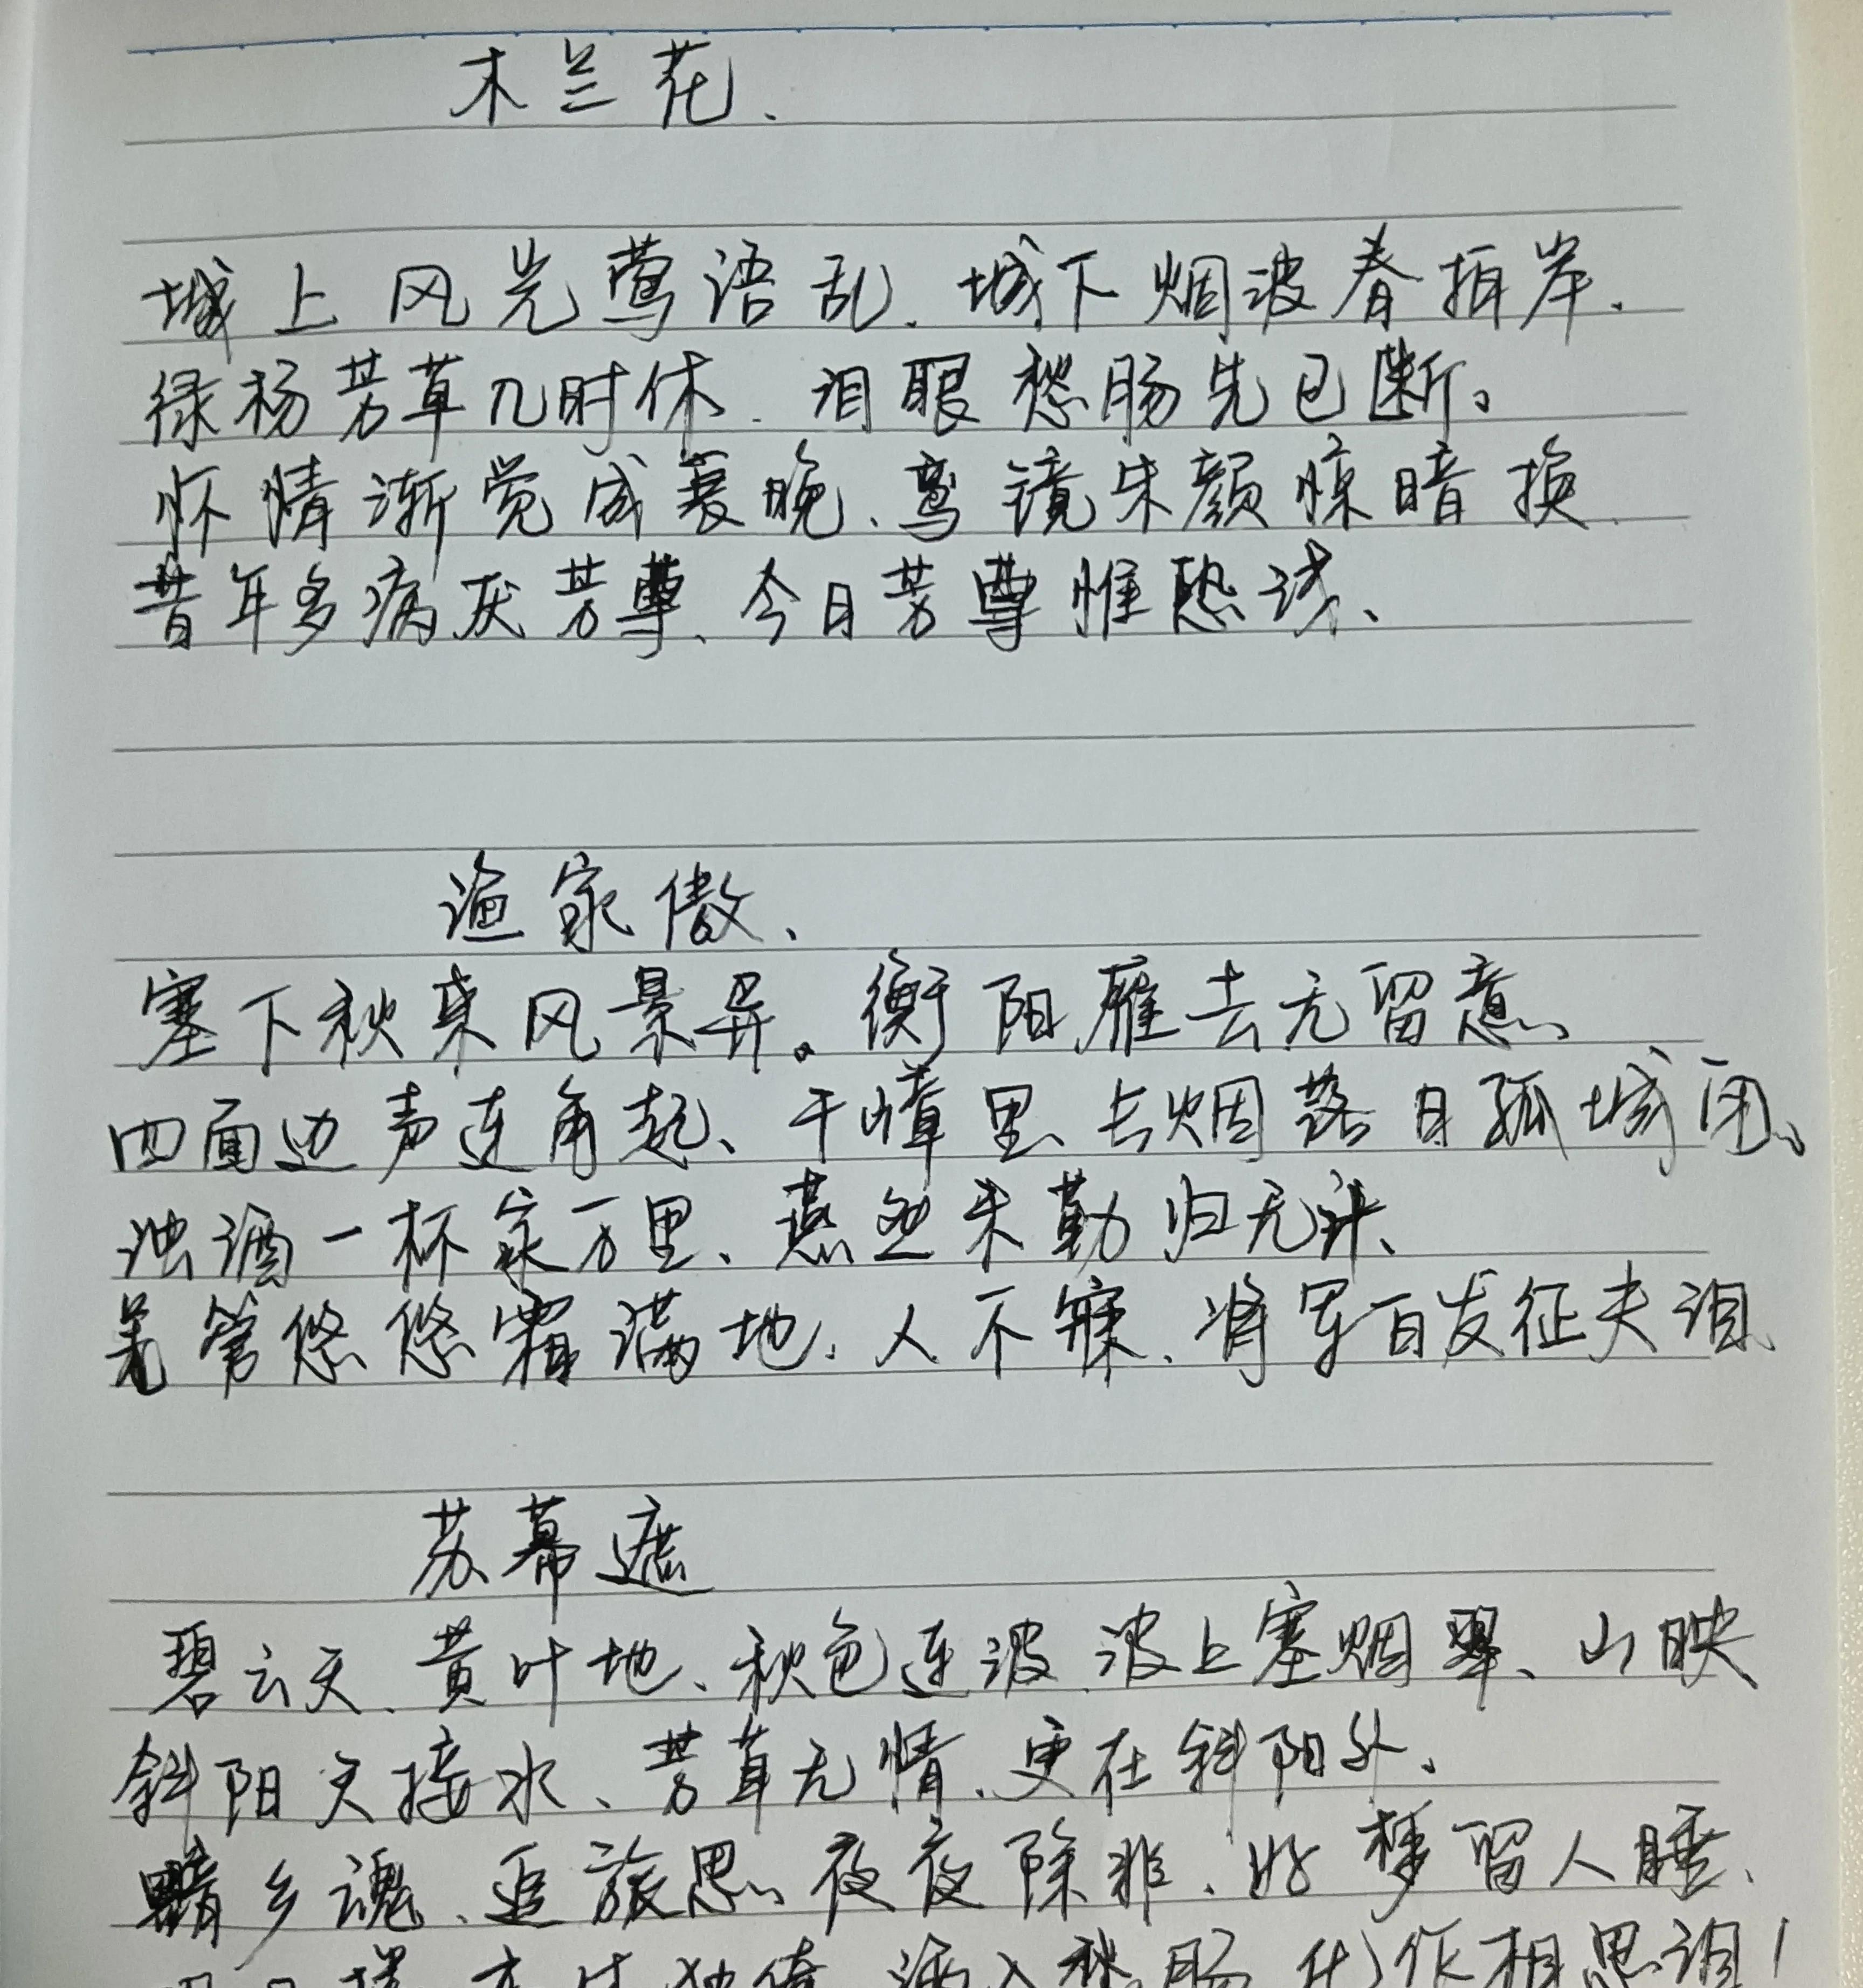 木兰花、
城上风光莺语乱、城下烟波春拍岸、
绿杨芳草几时休、泪眼愁肠先已断。
怀情渐觉成衰晚、鸾镜朱颜惊暗换
昔年多病厌芳尊、今日芳尊惟恐浅、
渔家傲、
塞下秋来风景异。衡阳雁去无留意、
四面边声连角起、千嶂里、长烟落日孤城闭、
浊酒一杯家万里、燕然未勒归无计、
羌管悠悠霜满地、人不寐、将军白发征夫泪、
苏幕遮
碧云天、黄叶地、秋色连波、波上寒烟翠、山映
斜阳天接水、芳草无情、更在斜阳外、
黯乡魂、追旅思、夜夜除非、好梦留人睡、
明月楼高休独倚、酒入愁肠、化作相思泪！